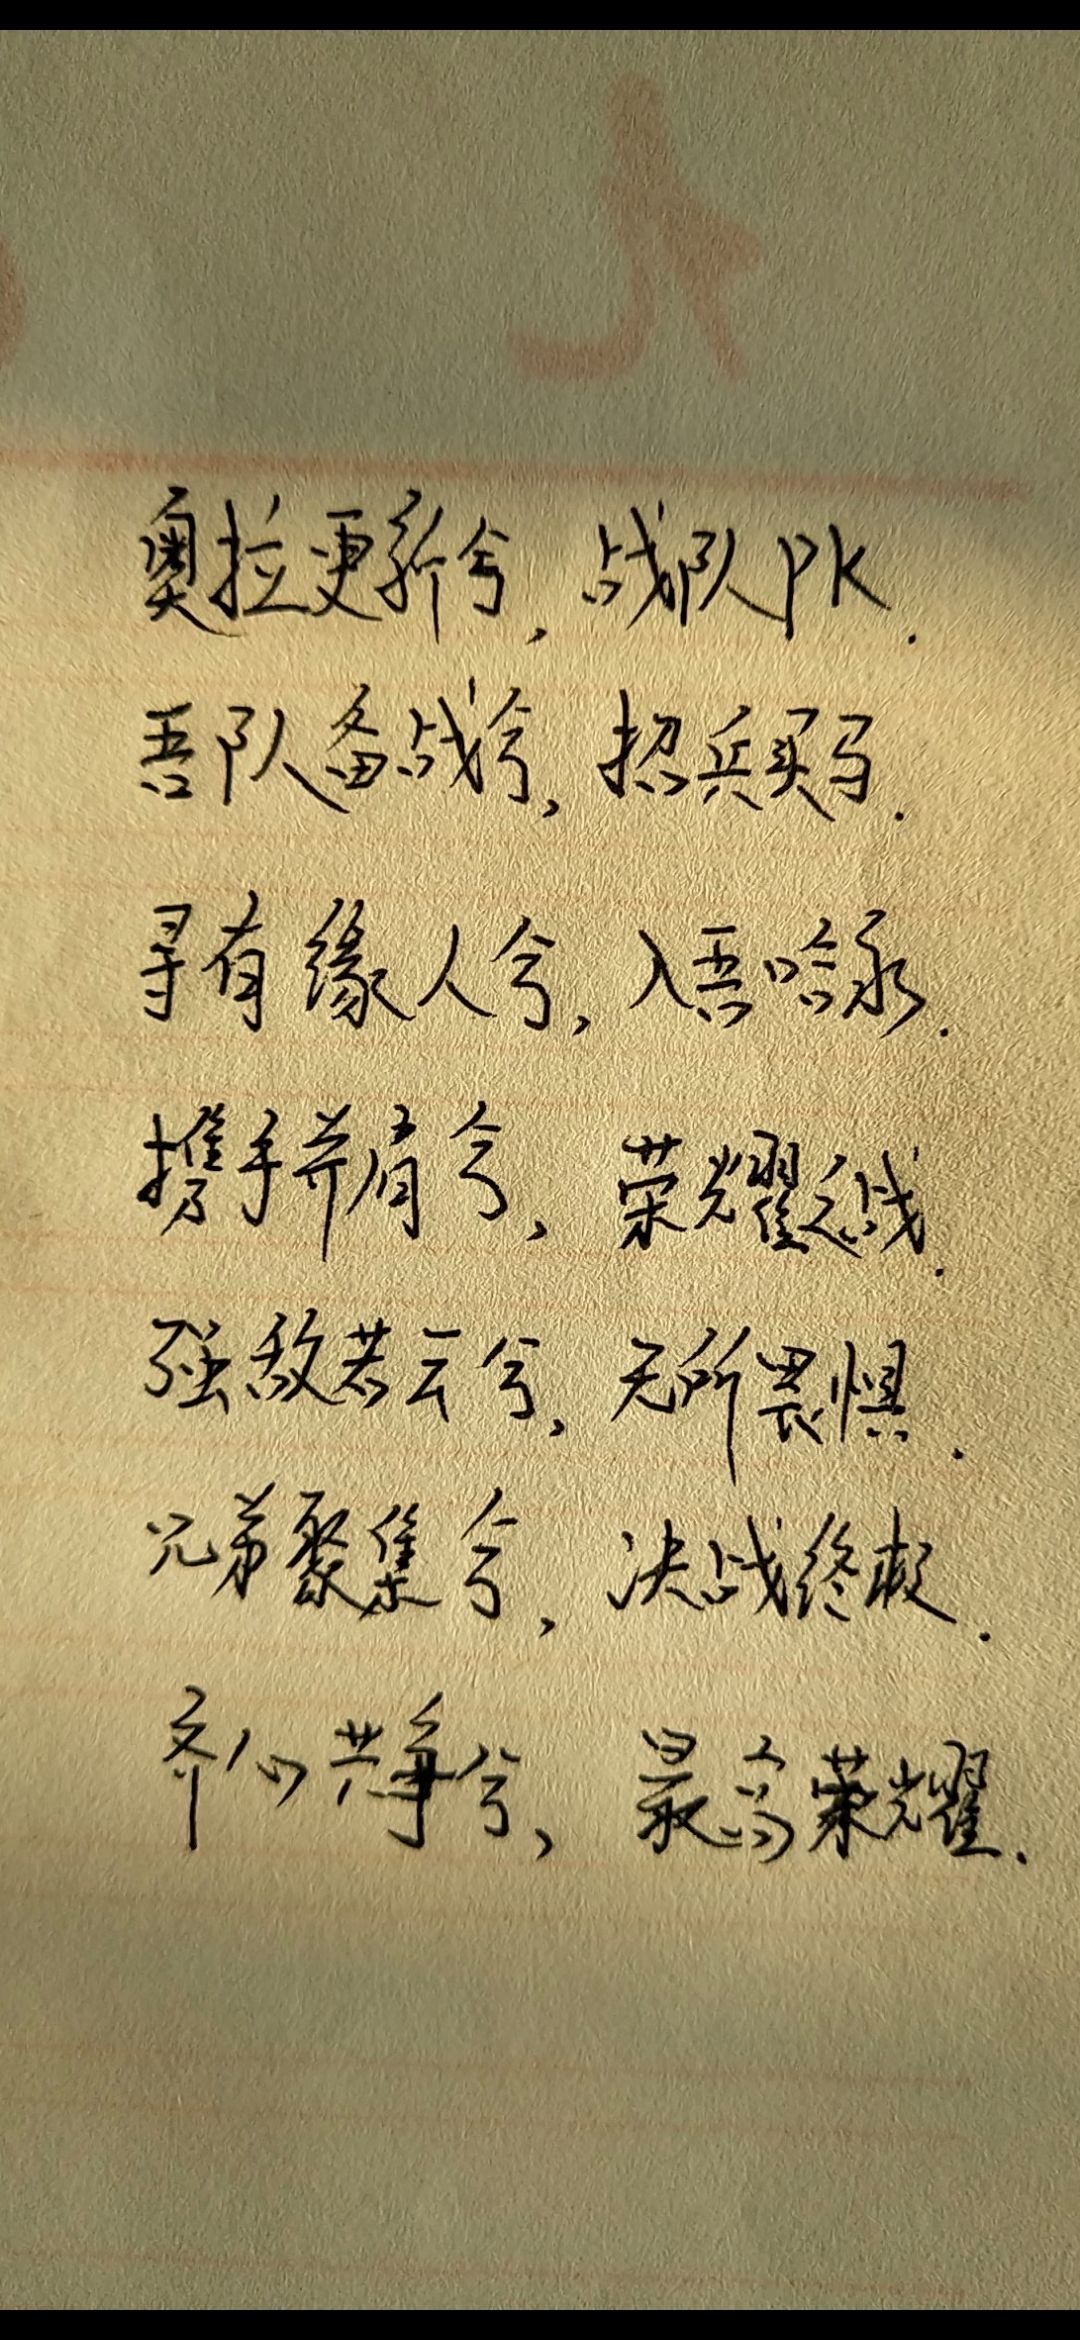 奥拉更新兮，战队PK.
吾队备战兮，招兵买马.
寻有缘人兮，入吾哈永.
携手并肩兮，荣耀之战.
强敌若云兮，无所畏惧.
兄弟聚集兮，决战终极.
齐心共争兮，最高荣耀.